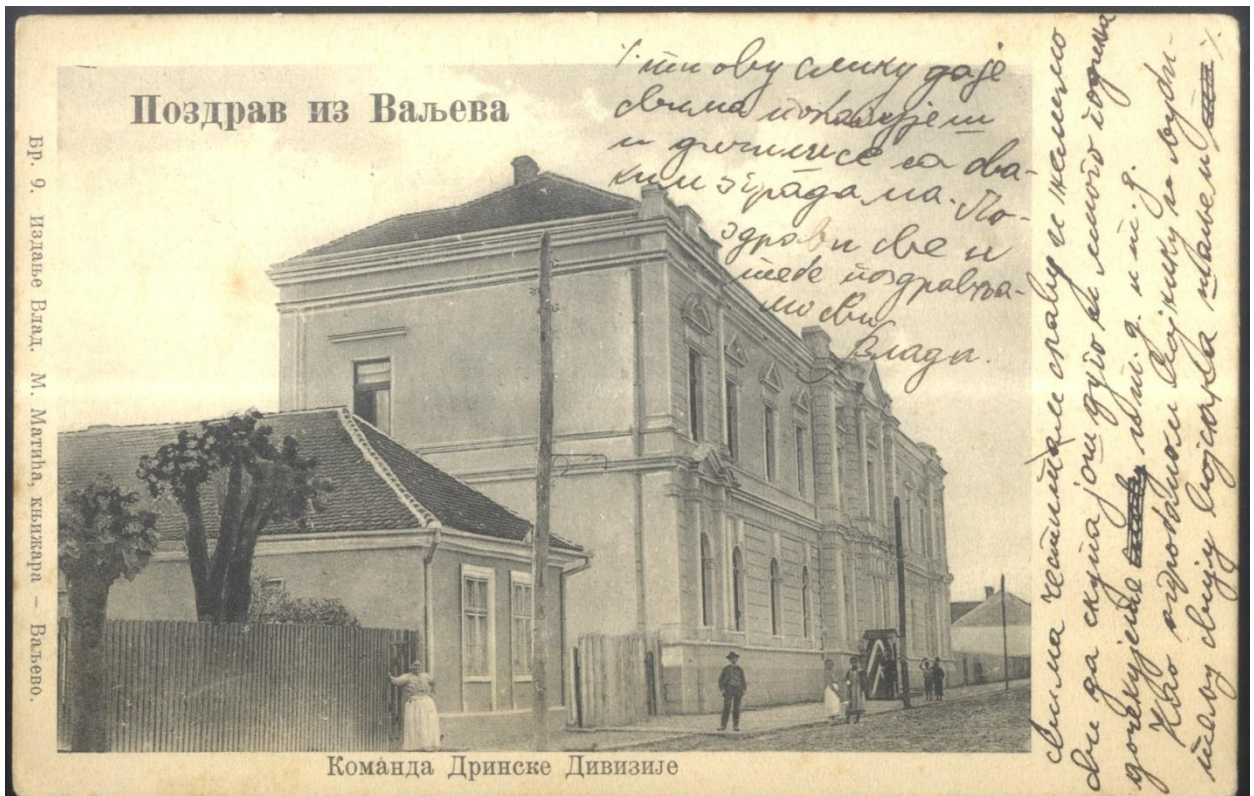 Поздрав из Ваљева
Бр. 9. Издање Влад. М. Матића, књижара – Ваљево.
Команда Дринске Дивизије
ти ову слику да је
свима показујеш
и дичилисе са ова-
ким зградама. По-
здрави све и
тебе поздравља-
мо сви
Влада.
свима честитам славу и желимо
сви да скупа још дуго и много година
дочекујете и т. д. и т. д.
Као
твоју војску